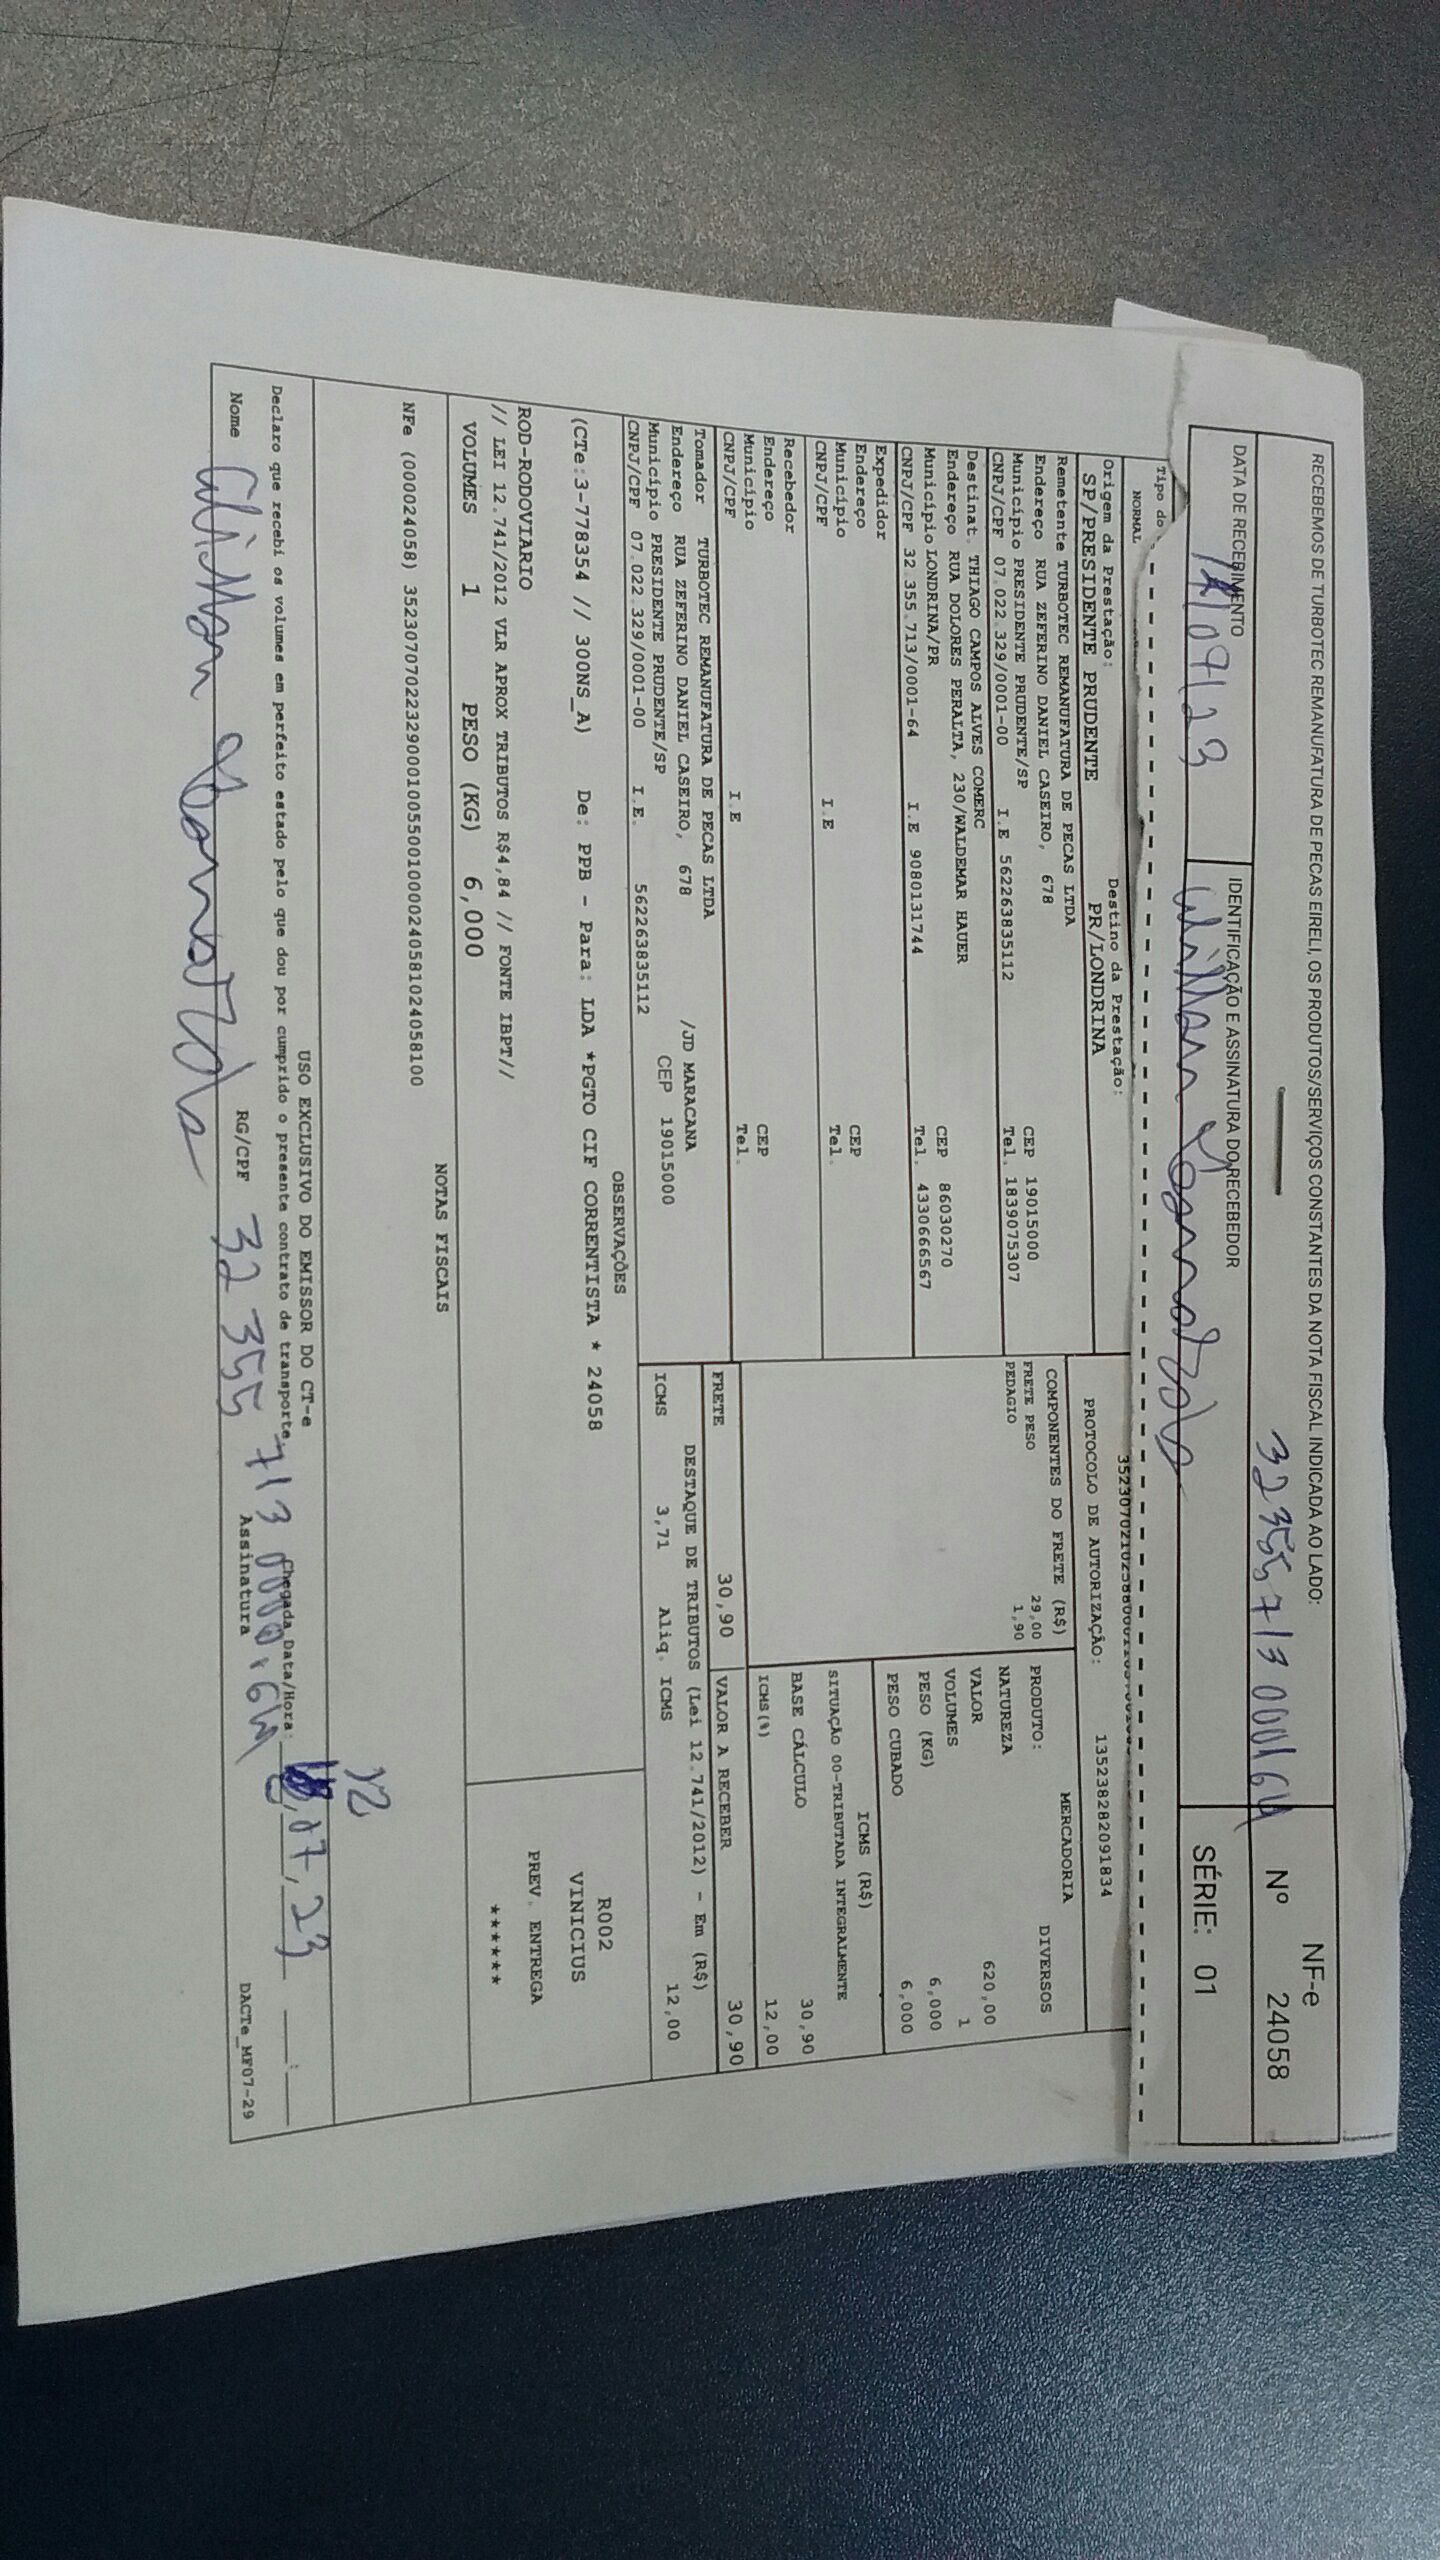 RECEBEMOS DE TURBOTEC REMANUFATURA DE PECAS EIRELI, OS PRODUTOS/SERVIÇOS CONSTANTES DA NOTA FISCAL INDICADA AO LADO:
32355713000164
NF-e
Nº 24058
SÉRIE: 01
DATA DE RECEBIMENTO
IDENTIFICAÇÃO E ASSINATURA DO RECEBEDOR
Tipo do
NORMAL
Origem da Prestação:
SP/PRESIDENTE PRUDENTE
Destino da Prestação:
PR/LONDRINA
PROTOCOLO DE AUTORIZAÇÃO: 135238282091834
Remetente TURBOTEC REMANUFATURA DE PECAS LTDA
Endereço RUA ZEFERINO DANIEL CASEIRO, 678
CEP 19015000
Município PRESIDENTE PRUDENTE/SP
Tel. 1839075307
CNPJ/CPF 07.022.329/0001-00 I.E 562263835112
Destinat. THIAGO CAMPOS ALVES COMERC
Endereço RUA DOLORES PERALTA, 230/WALDEMAR HAUER
CEP 86030270
Município LONDRINA/PR
Tel. 4330666567
CNPJ/CPF 32.355.713/0001-64 I.E 9080131744
Expedidor
Endereço
CEP
Município
Tel.
CNPJ/CPF I.E
Recebedor
Endereço
CEP
Município
Tel.
CNPJ/CPF I.E
Tomador TURBOTEC REMANUFATURA DE PECAS LTDA
Endereço RUA ZEFERINO DANIEL CASEIRO, 678 /JD MARACANA
Município PRESIDENTE PRUDENTE/SP CEP 19015000
CNPJ/CPF 07.022.329/0001-00 I.E. 562263835112
COMPONENTES DO FRETE (R$)
FRETE PESO 29,00
PEDAGIO 1,90
MERCADORIA
PRODUTO: DIVERSOS
NATUREZA
VALOR 620,00
VOLUMES 1
PESO (KG) 6,000
PESO CUBADO 6,000
ICMS (R$)
SITUAÇÃO 00-TRIBUTADA INTEGRALMENTE
BASE CÁLCULO 30,90
ICMS(%) 12,00
FRETE 30,90
VALOR A RECEBER 30,90
DESTAQUE DE TRIBUTOS (Lei 12.741/2012) - Em (R$)
ICMS 3,71 Aliq. ICMS 12,00
OBSERVAÇÕES
(CTe:3-778354 // 300NS_A) De: PPB - Para: LDA *PGTO CIF CORRENTISTA * 24058
ROD-RODOVIARIO
// LEI 12.741/2012 VLR APROX TRIBUTOS R$4,84 // FONTE IBPT//
R002
VINICIUS
PREV. ENTREGA
*******
VOLUMES 1 PESO (KG) 6,000
NOTAS FISCAIS
NFe (000024058) 35230707022329000100550010000240581024058100
USO EXCLUSIVO DO EMISSOR DO CT-e
Declaro que recebi os volumes em perfeito estado pelo que dou por cumprido o presente contrato de transporte
Chegada Data/Hora: 12 07, 23
Nome
RG/CPF 32 355 713 0001.64
Assinatura
DACTe_MF07-29